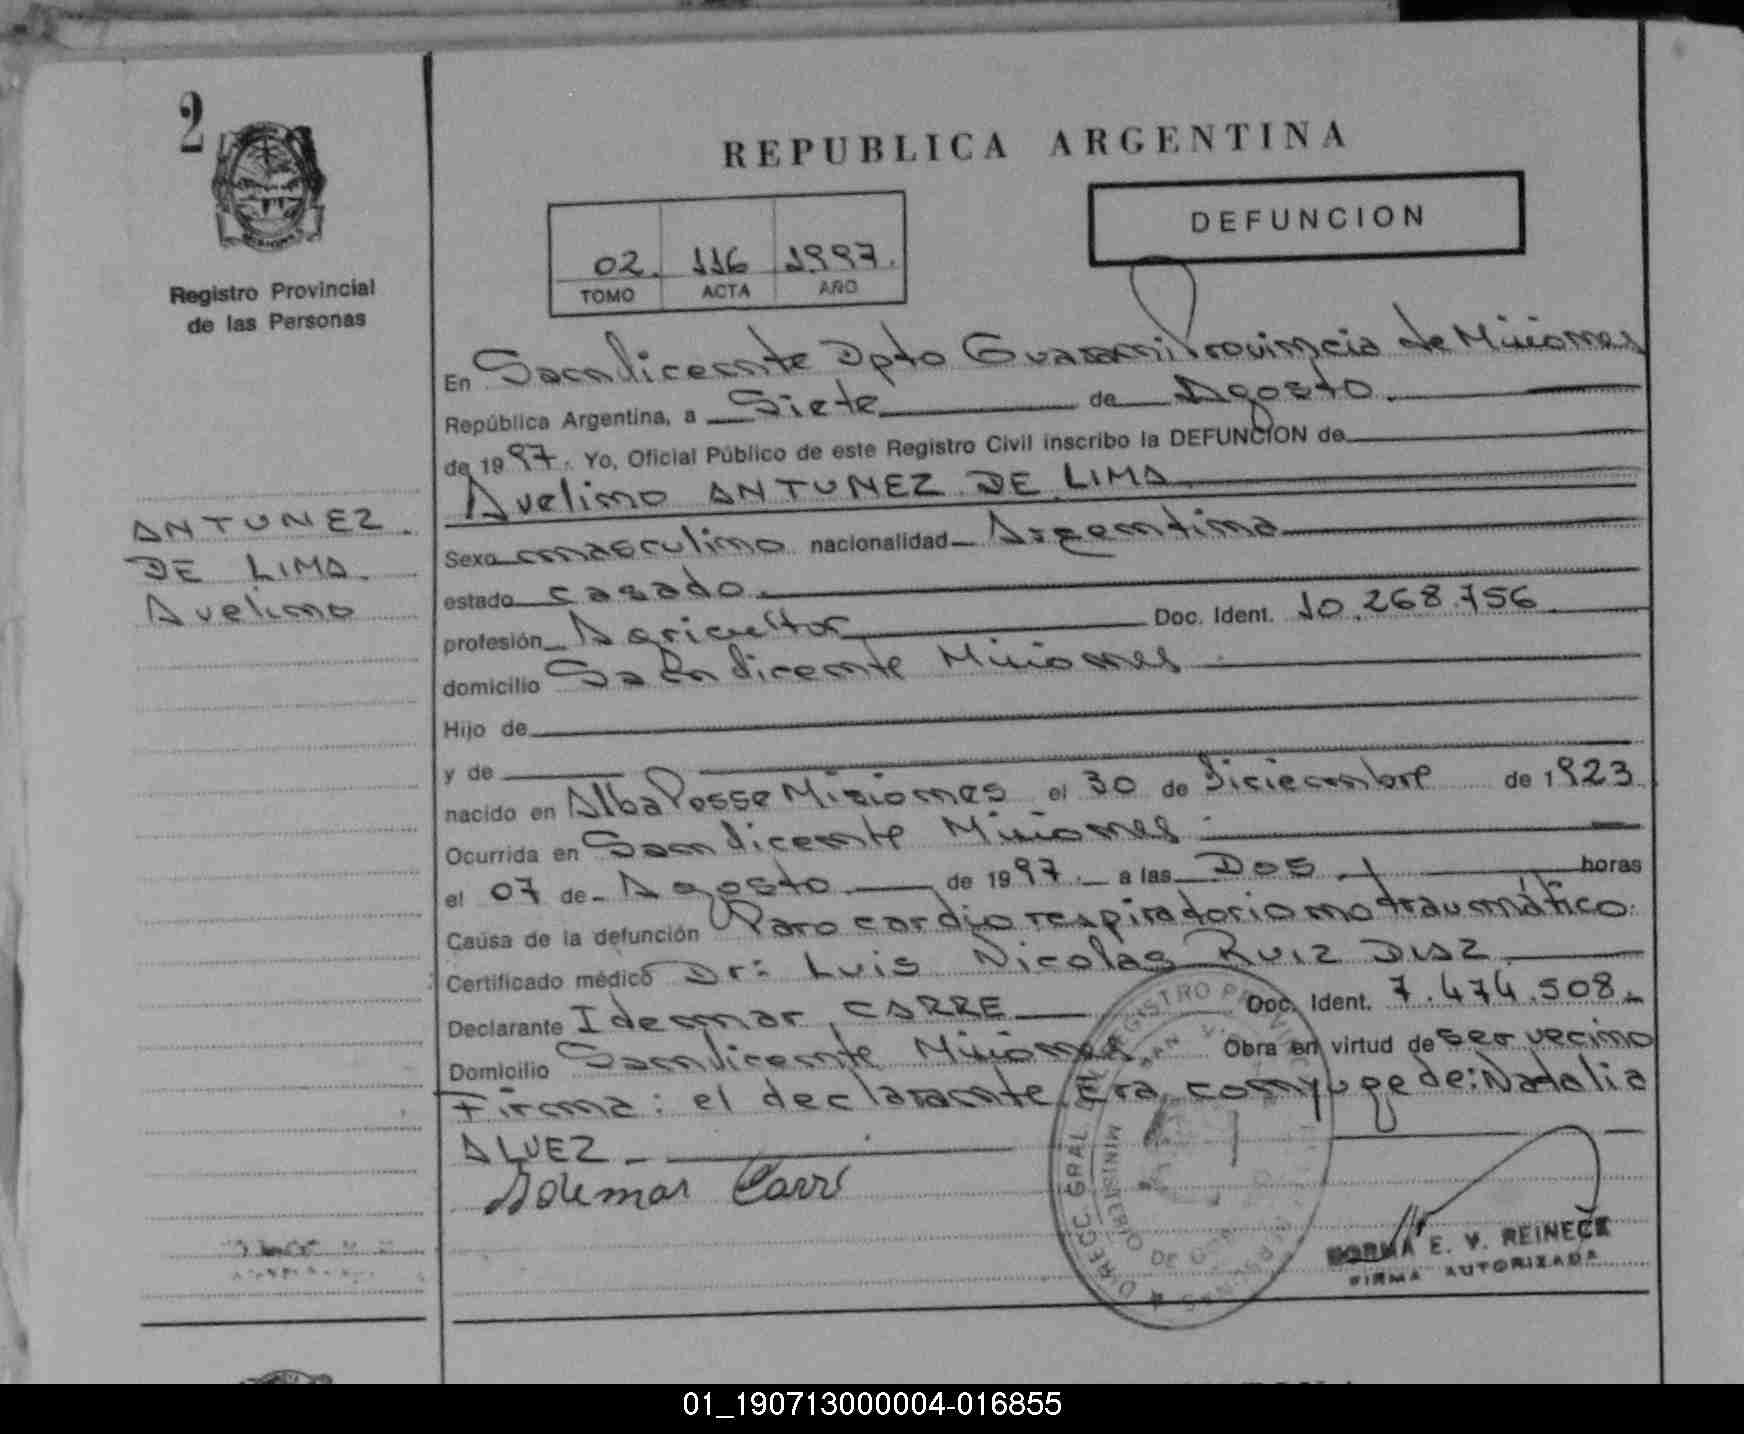 2
REPUBLICA ARGENTINA
DEFUNCION
02. 116 1997.
TOMO ACTA AÑO
Registro Provincial
de las Personas
ANTUNEZ
DE LIMA.
Avelino
En San Vicente Dpto Guarani Provincia de Misiones
República Argentina, a Siete de Agosto.
de 1997. Yo, Oficial Público de este Registro Civil inscribo la DEFUNCION de
Avelino ANTUNEZ DE LIMA
Sexo masculino nacionalidad Argentina
estado casado.
profesión Agricultor Doc. Ident. 10.268.756
domicilio San Vicente Misiones
Hijo de
y de
nacido en Alba Posse Misiones el 30 de Diciembre de 1923
Ocurrida en San Vicente Misiones
el 07 de Agosto de 1997. a las Dos horas
Causa de la defunción Paro cardio respiratorio no traumático.
Certificado médico Dr: Luis Nicolas RUIZ DIAZ
Declarante Idemar CARRE Doc. Ident. 7.474.508.
Domicilio San Vicente Misiones Obra en virtud de ser vecino
Firma: el declarante. Era conyuge de: Natalia
ALVEZ
Idemar Carré
DIRECC. GRAL. DEL REGISTRO PROVINCIAL
SAN VICENTE
MINISTERIO DE
NORMA E. V. REINECK
FIRMA AUTORIZADA
01_190713000004-016855